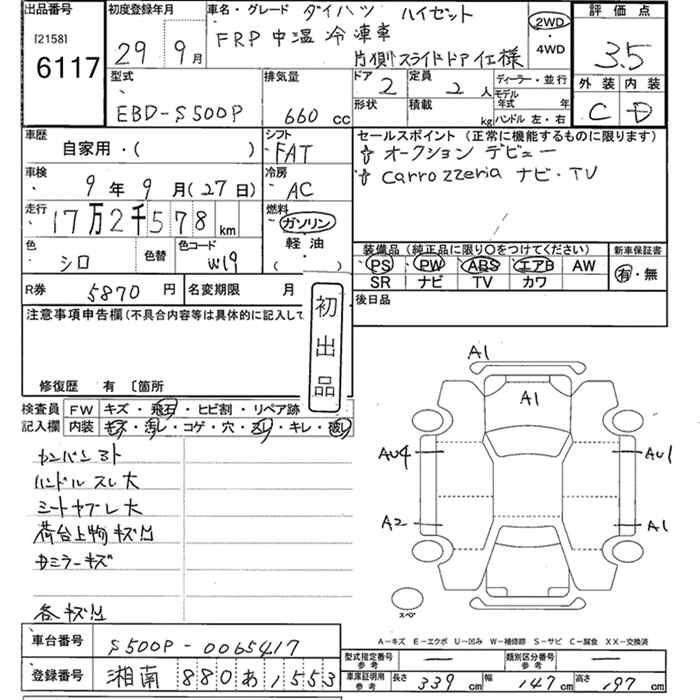 出品番号 [2158] 6117
初度登録年月 29年 9月
車名・グレード ダイハツ ハイゼット
FRP 中温 冷凍車
片側スライドドア仕様
2WD・4WD
評価点 3.5
外装 内装
C D
型式 EBD-S500P
排気量 660 cc
ドア 2 定員 2 人
形状 積載 kg
ディーラー・並行
モデル年式 年
ハンドル 左・右
車歴 自家用・( )
シフト FAT
セールスポイント (正常に機能するものに限ります)
☆ オークション デビュー
☆ carrozzeria ナビ・TV
車検 9年 9月(27日)
冷房 AC
走行 17万2千578km
燃料 ガソリン
軽油・
( )
色 シロ 色替 色コード W19
装備品 (純正品に限り○をつけてください)
PS PW ABS エアB AW
SR ナビ TV カワ
新車保証書
有・無
R券 5870円 名変期限 月
後日品
注意事項申告欄 (不具合内容等は具体的に記入して
初出品
修復歴 有 〔箇所
検査員記入欄
FW キズ・飛石・ヒビ割・リペア跡
内装 キズ・汚レ・コゲ・穴・スレ・キレ・破レ
カンバン ヨト
ハンドル スレ大
シートヤブレ大
荷台上物キズ凹
Fミラーキズ
各キズ凹
A1
A1
AU4 AU1
A2 A1
スペア
A-キズ E-エクボ U-凹み W-補修跡 S-サビ C-腐食 XX-交換済
車台番号 S500P-0065417
登録番号 湘南 880 あ 1553
型式指定番号 参考 — 類別区分番号 参考 —
車庫証明用 参考 長さ 339 cm 幅 147 cm 高さ 197 cm